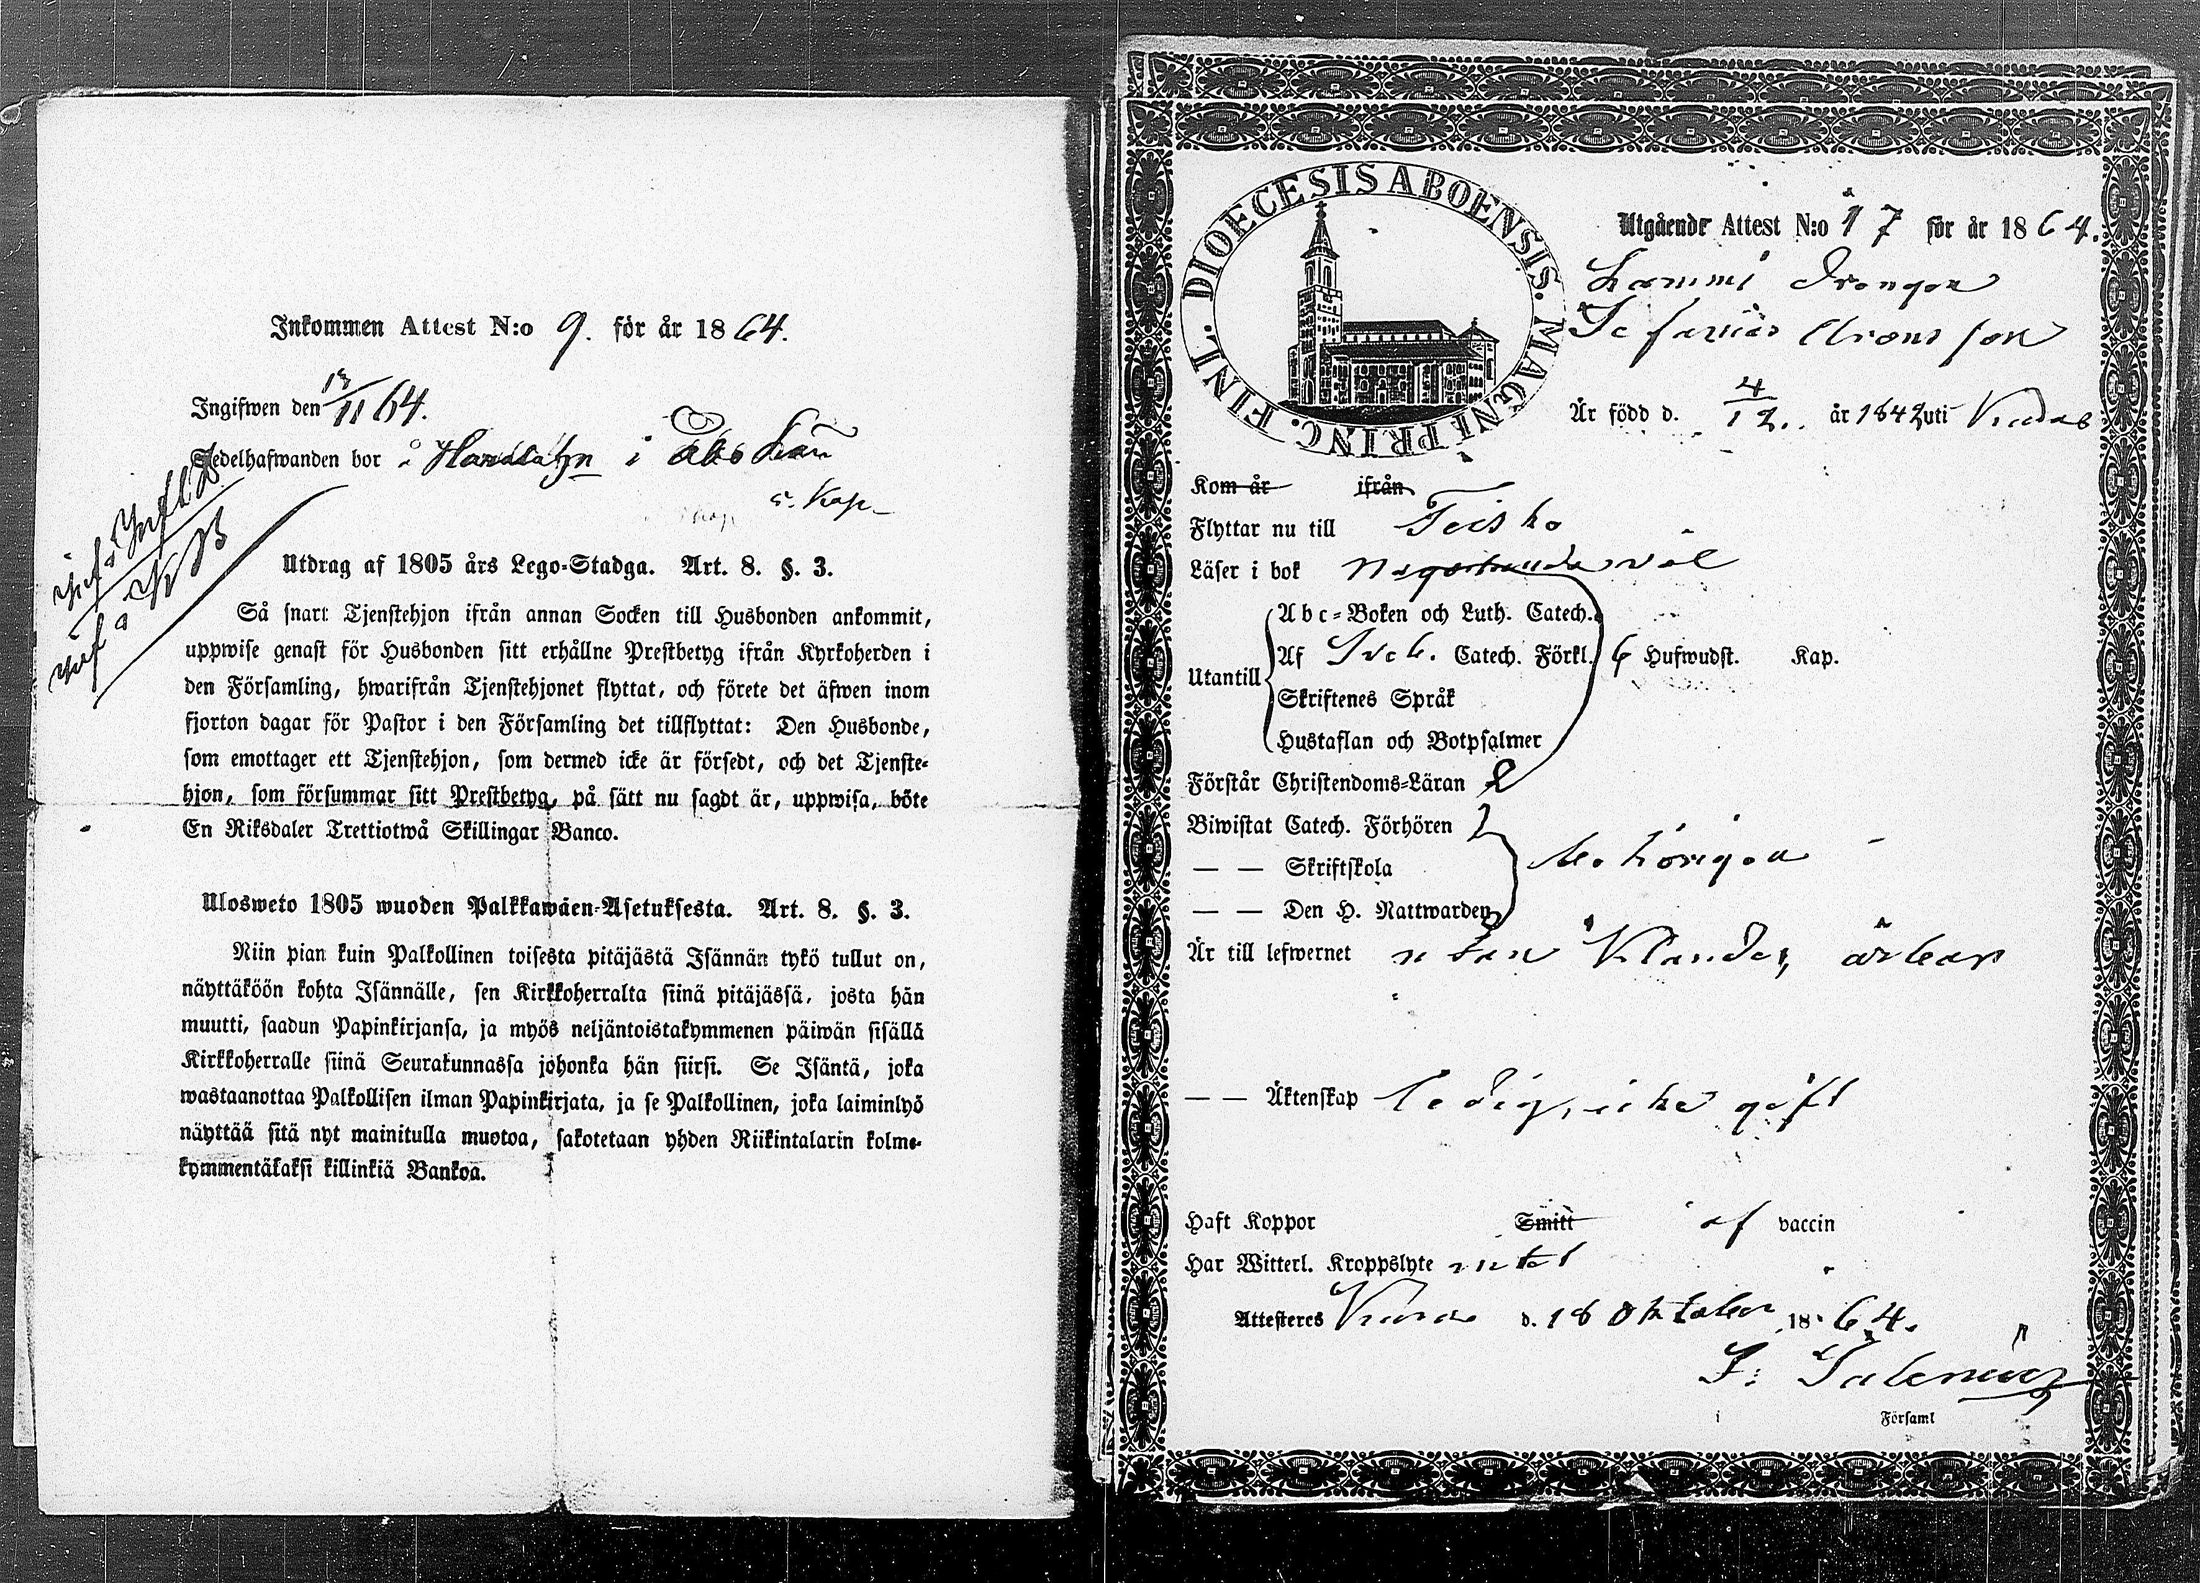 Inkommen Attest N:o 9. för år 1864.
Ingifwen den 13/11 64.
Sedelhafwanden bor å i Åbo
Utdrag af 1805 års Lego-Stadga. Art. 8. §. 3.
Så snart Tjenstehjon ifrån annan Socken till Husbonden ankommit,
uppwise genast för Husbonden sitt erhållne Prestbetyg ifrån Kyrkoherden i
den Församling, hwarifrån Tjenstehjonet flyttat, och förete det äfwen inom
fjorton dagar för Pastor i den Församling det tillflyttat: Den Husbonde,
som emottager ett Tjenstehjon, som dermed icke är försedt, och det Tjenste-
hjon, som försummar sitt Prestbetyg, på sätt nu sagdt är, uppwisa, böte
En Riksdaler Trettiotwå Skillingar Banco.
Ulosweto 1805 wuoden Palkkawäen-Asetuksesta. Art. 8. §. 3.
Niin pian kuin Palkollinen toisesta pitäjästä Isännän tykö tullut on,
näyttäköön kohta Isännälle, sen Kirkkoherralta siinä pitäjässä, josta hän
muutti, saadun Papinkirjansa, ja myös neljäntoistakymmenen päiwän sisällä
Kirkkoherralle siinä Seurakunnassa johonka hän siirsi. Se Isäntä, joka
wastaanottaa Palkollisen ilman Papinkirjata, ja se Palkollinen, joka laiminlyö
näyttää sitä nyt mainitulla muotoa, sakotetaan yhden Riikintalarin kolme-
kymmentäkaksi killinkiä Bankoa.
DIOECESIS ABOENSIS. MAGNI PRINC. FINL.
Utgående Attest N:o 17 för år 1864.
Lammi Drengen
Sefanias Aronsson
Är född d. 4/12. år 1842 uti
Kom år ifrån
Flyttar nu till Teisko
Läser i bok någorlunda väl
Utantill
Abc-Boken och Luth. Catech.
Af Sveb. Catech. Förkl. 6 Hufwudst. Kap.
Skriftenes Språk
Hustaflan och Botpsalmer
Förstår Christendoms-Läran
Biwistat Catech. Förhören
— — Skriftskola behörigen
— — Den H. Nattwarden
Är till lefwernet utan klander, ärbar
— — Äktenskap ledig, icke gift
Haft Koppor Smitt af vaccin
Har Witterl. Kroppslyte intet
Attesteres d. 18 Oktober 1864.
Församl